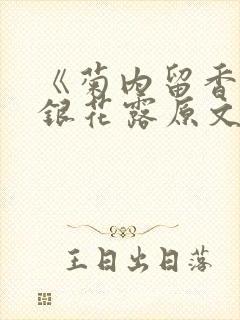 《菊内留香
银花露原文
王日出日落